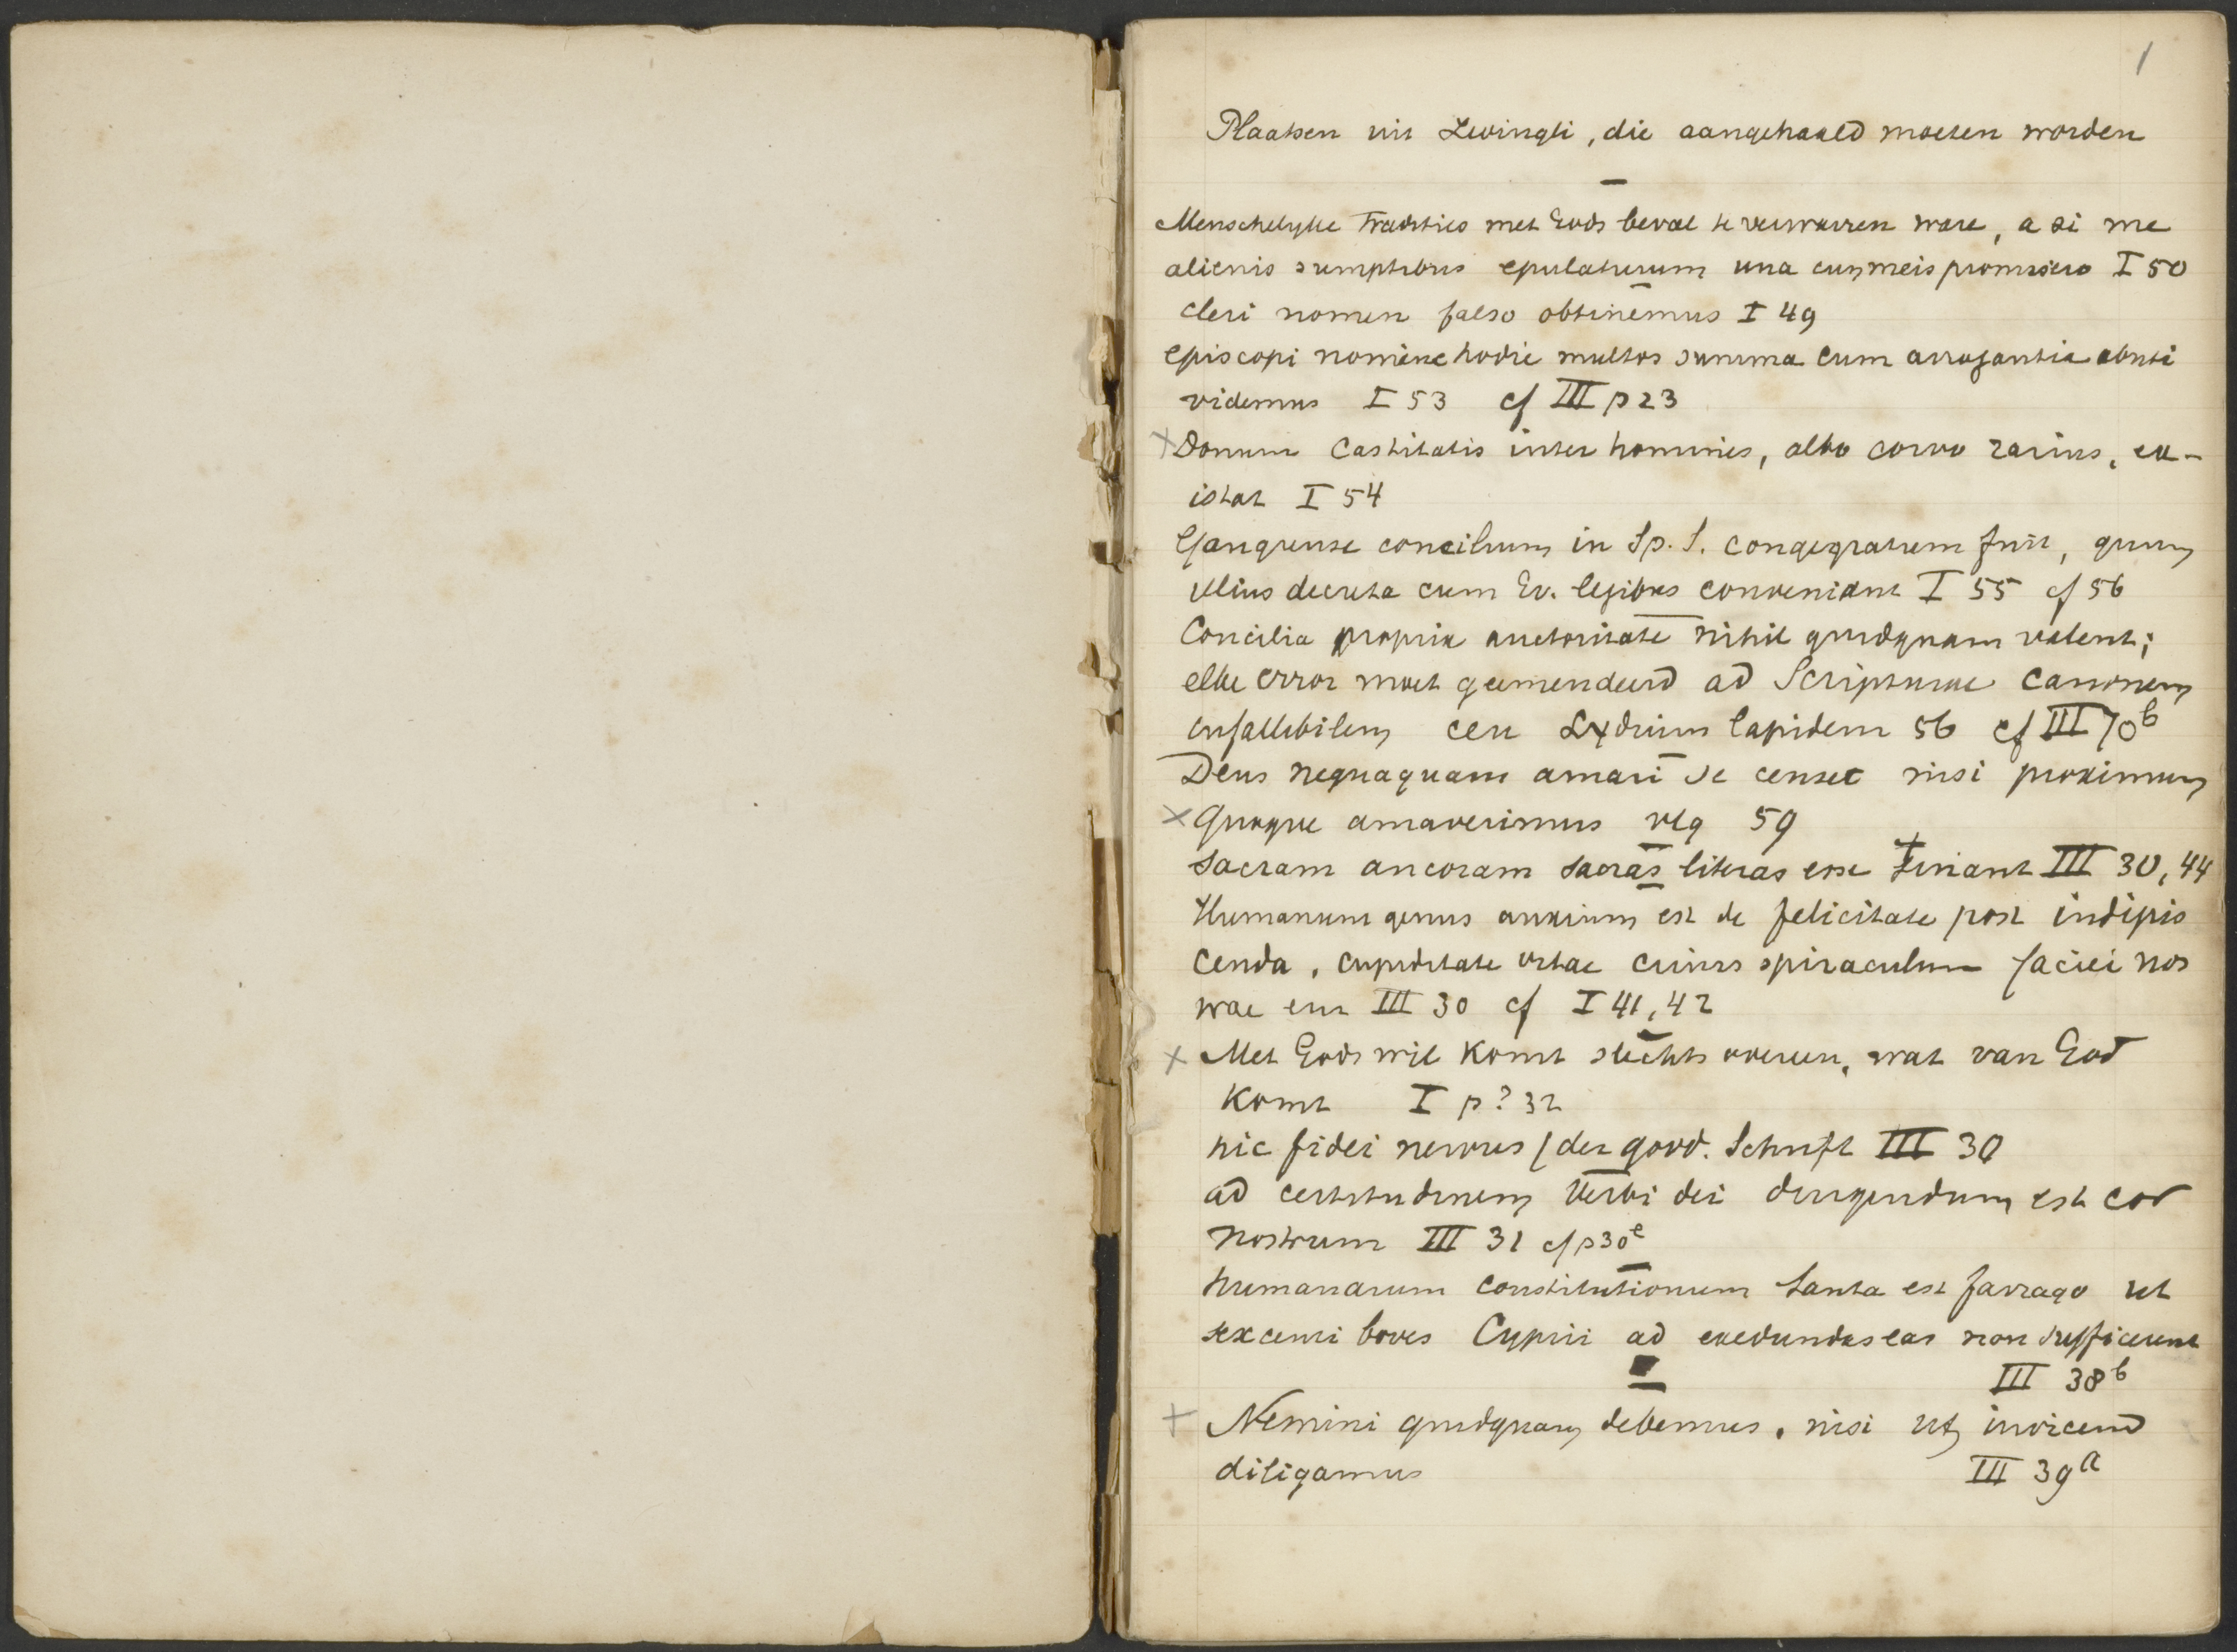 1
Plaatsen uit Zwingli, die aangehaald moeten worden
Menschelyke Tradities met Gods bevel te verwarren ware, a si me
alienis sumptibus epulaturum una cum meis promisero I 50
cleri nomen falso obtinemus I 49
episcopi nomine hodie multos summa cum arrogantia abuti
videmus I 53 cf III p 23
Donum castitatis inter homines, albo corvo rarius, ex-
istat I 54
Gangrense concilium in Sp. S. congregatum fuit, quum
illius decreta cum Ev. legibus conveniant I 55 cf 56
Concilia propria auctoritate nihil quidquam valent;
elke error moet geemendeerd ad Scripturae canonem
infallibilem ceu Lydium lapidem 56 cf III 70b
Deus nequaquam amari se censet nisi proximum
quoque amaverimus vlg 59
sacram ancoram sacras literas esse sciant III 30, 44
Humanum genus anxium est de felicitate post indipis
cenda, cupiditate vitae cuius spiraculum faciei nos
trae III 30 cf I 41, 42
Met Gods wil komt slechts overeen, wat van God
komt I p? 32
hic fidei nervus / der godd. Schrift III 30
ad certitudinem verbi dei dirigendum est cor
nostrum III 31 cf p 30e
humanarum constitutionum tanta est farrago ut
sexcenti boves Cyprii ad exedundas eas non sufficerent
III 38b
Nemini quidquam debemus, nisi ut invicem
diligamus III 39a